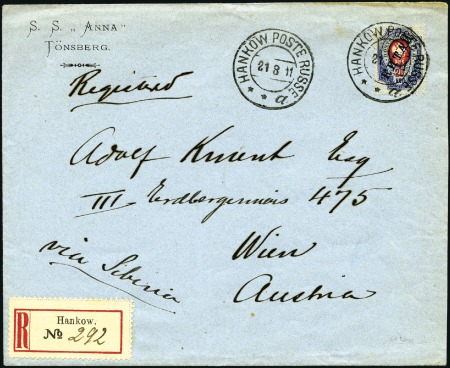 S. S. „ANNA"
TÖNSBERG.
HANKOW POSTE RUSSE
21 8 11
a
HANKOW POSTE RUSSE
a
Registered
Adolf Kment Esq
III Erdbergermais 475
via Siberia
Wien
Austria
R
Hankow.
No 292